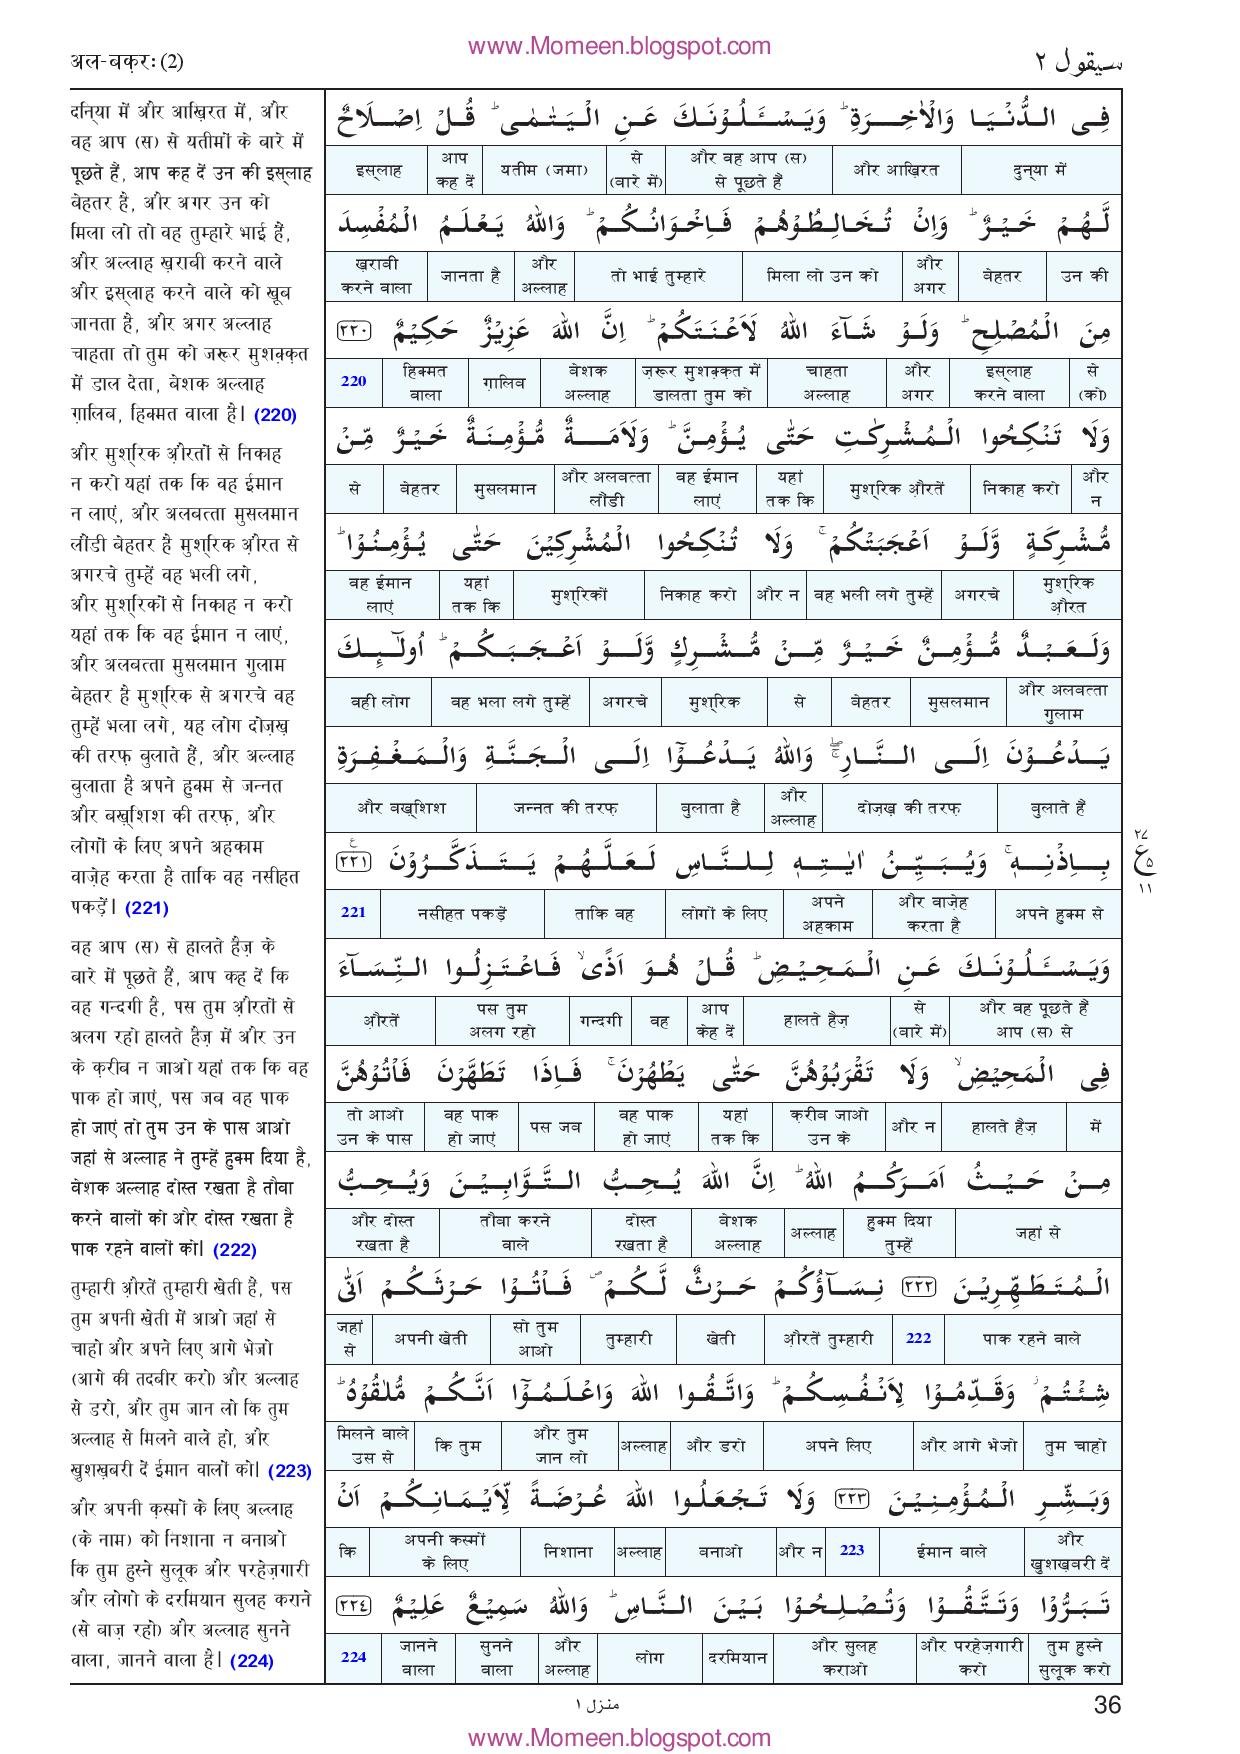 www.Momeen.blogspot.com
अल-बक़रः (2)
سیقول ٢
दुनिया में और आख़िरत में, और
वह आप (स) से यतीमों के बारे में
पूछते हैं, आप कह दें उन की इस्लाह
बेहतर है, और अगर उन को
मिला लो तो वह तुम्हारे भाई हैं,
और अल्लाह ख़राबी करने वाले
और इस्लाह करने वाले को खूब
जानता है, और अगर अल्लाह
चाहता तो तुम को जरूर मुशक़्क़त
में डाल देता, बेशक अल्लाह
ग़ालिब, हिक्मत वाला है। (220)
और मुश्रिक औ़रतों से निकाह
न करो यहां तक कि वह ईमान
न लाएं, और अलबत्ता मुसलमान
लौंडी बेहतर है मुश्रिक औ़रत से
अगरचे तुम्हें वह भली लगे,
और मुश्रिकों से निकाह न करो
यहां तक कि वह ईमान न लाएं,
और अलबत्ता मुसलमान गुलाम
बेहतर है मुश्रिक से अगरचे वह
तुम्हें भला लगे, यह लोग दोज़ख़
की तरफ़ बुलाते हैं, और अल्लाह
बुलाता है अपने हुक्म से जन्नत
और बख़्शिश की तरफ़, और
लोगों के लिए अपने अहकाम
वाज़ेह करता है ताकि वह नसीहत
पकड़ें। (221)
वह आप (स) से हालते हैज़ के
बारे में पूछते हैं, आप कह दें कि
वह गन्दगी है, पस तुम औ़रतों से
अलग रहो हालते हैज़ में और उन
के क़रीब न जाओ यहां तक कि वह
पाक हो जाएं, पस जब वह पाक
हो जाएं तो तुम उन के पास आओ
जहां से अल्लाह ने तुम्हें हुक्म दिया है,
बेशक अल्लाह दोस्त रखता है तौबा
करने वालों को और दोस्त रखता है
पाक रहने वालों को। (222)
तुम्हारी औ़रतें तुम्हारी खेती हैं, पस
तुम अपनी खेती में आओ जहां से
चाहो और अपने लिए आगे भेजो
(आगे की तदबीर करो) और अल्लाह
से डरो, और तुम जान लो कि तुम
अल्लाह से मिलने वाले हो, और
खुशख़बरी दें ईमान वालों को। (223)
और अपनी क़स्मों के लिए अल्लाह
(के नाम) को निशाना न बनाओ
कि तुम हुस्ने सुलूक और परहेज़गारी
और लोगो के दरमियान सुलह कराने
(से बाज़ रहो) और अल्लाह सुनने
वाला, जानने वाला है। (224)
فِى الدُّنْيَا وَالْاٰخِرَةِ ؕ وَيَسْـَٔـلُوْنَكَ عَنِ الْيَتٰمٰى ؕ قُلْ اِصْلَاحٌ
दुन्या में | और आख़िरत | और वह आप (स) से पूछते हैं | से (बारे में) | यतीम (जमा) | आप कह दें | इस्लाह
لَّهُمْ خَيْرٌ ؕ وَاِنْ تُخَالِطُوْهُمْ فَاِخْوَانُكُمْ ؕ وَاللّٰهُ يَعْلَمُ الْمُفْسِدَ
उन की | बेहतर | और अगर | मिला लो उन को | तो भाई तुम्हारे | और अल्लाह | जानता है | ख़राबी करने वाला
مِنَ الْمُصْلِحِ ؕ وَلَوْ شَآءَ اللّٰهُ لَاَعْنَتَكُمْ ؕ اِنَّ اللّٰهَ عَزِيْزٌ حَكِيْمٌ ٢٢٠
से (को) | इस्लाह करने वाला | और अगर | चाहता अल्लाह | ज़रूर मुशक़्क़त में डालता तुम को | बेशक अल्लाह | ग़ालिब | हिक्मत वाला | 220
وَلَا تَنْكِحُوا الْمُشْرِكٰتِ حَتّٰى يُؤْمِنَّ ؕ وَلَاَمَةٌ مُّؤْمِنَةٌ خَيْرٌ مِّنْ
और न | निकाह करो | मुश्रिक औ़रतें | यहां तक कि | वह ईमान लाएं | और अलबत्ता लौंडी | मुसलमान | बेहतर | से
مُّشْرِكَةٍ وَّلَوْ اَعْجَبَتْكُمْ ۚ وَلَا تُنْكِحُوا الْمُشْرِكِيْنَ حَتّٰى يُؤْمِنُوْا ؕ
मुश्रिक औ़रत | अगरचे | वह भली लगे तुम्हें | और न | निकाह करो | मुश्रिकों | यहां तक कि | वह ईमान लाएं
وَلَعَبْدٌ مُّؤْمِنٌ خَيْرٌ مِّنْ مُّشْرِكٍ وَّلَوْ اَعْجَبَكُمْ ؕ اُولٰٓئِكَ
और अलबत्ता गुलाम | मुसलमान | बेहतर | से | मुश्रिक | अगरचे | वह भला लगे तुम्हें | वही लोग
يَدْعُوْنَ اِلَى النَّارِ ۖۚ وَاللّٰهُ يَدْعُوْٓا اِلَى الْجَنَّةِ وَالْمَغْفِرَةِ
बुलाते हैं | दोज़ख़ की तरफ़ | और अल्लाह | बुलाता है | जन्नत की तरफ़ | और बख़्शिश
بِاِذْنِهٖ ۚ وَيُبَيِّنُ اٰيٰتِهٖ لِلنَّاسِ لَعَلَّهُمْ يَتَذَكَّرُوْنَ ٢٢١
अपने हुक्म से | और वाज़ेह करता है | अपने अहकाम | लोगों के लिए | ताकि वह | नसीहत पकड़ें | 221
٢٧
ع ٥
١١
وَيَسْـَٔـلُوْنَكَ عَنِ الْمَحِيْضِ ؕ قُلْ هُوَ اَذًى ۙ فَاعْتَزِلُوا النِّسَآءَ
और वह पूछते हैं आप (स) से | से (बारे में) | हालते हैज़ | आप केह दें | वह | गन्दगी | पस तुम अलग रहो | औ़रतें
فِى الْمَحِيْضِ ۙ وَلَا تَقْرَبُوْهُنَّ حَتّٰى يَطْهُرْنَ ۚ فَاِذَا تَطَهَّرْنَ فَاْتُوْهُنَّ
में | हालते हैज़ | और न | क़रीब जाओ उन के | यहां तक कि | वह पाक हो जाएं | पस जब | वह पाक हो जाएं | तो आओ उन के पास
مِنْ حَيْثُ اَمَرَكُمُ اللّٰهُ ؕ اِنَّ اللّٰهَ يُحِبُّ التَّوَّابِيْنَ وَيُحِبُّ
जहां से | हुक्म दिया तुम्हें | अल्लाह | बेशक अल्लाह | दोस्त रखता है | तौबा करने वाले | और दोस्त रखता है
الْمُتَطَهِّرِيْنَ ٢٢٢ نِسَآؤُكُمْ حَرْثٌ لَّكُمْ ۪ فَاْتُوْا حَرْثَكُمْ اَنّٰى
पाक रहने वाले | 222 | औ़रतें तुम्हारी | खेती | तुम्हारी | सो तुम आओ | अपनी खेती | जहां से
شِئْتُمْ ؗ وَقَدِّمُوْا لِاَنْفُسِكُمْ ؕ وَاتَّقُوا اللّٰهَ وَاعْلَمُوْٓا اَنَّكُمْ مُّلٰقُوْهُ ؕ
तुम चाहो | और आगे भेजो | अपने लिए | और डरो | अल्लाह | और तुम जान लो | कि तुम | मिलने वाले उस से
وَبَشِّرِ الْمُؤْمِنِيْنَ ٢٢٣ وَلَا تَجْعَلُوا اللّٰهَ عُرْضَةً لِّاَيْمَانِكُمْ اَنْ
और खुशख़बरी दें | ईमान वाले | 223 | और न | बनाओ | अल्लाह | निशाना | अपनी कस्मों के लिए | कि
تَبَرُّوْا وَتَتَّقُوْا وَتُصْلِحُوْا بَيْنَ النَّاسِ ؕ وَاللّٰهُ سَمِيْعٌ عَلِيْمٌ ٢٢٤
तुम हुस्ने सुलूक करो | और परहेज़गारी करो | और सुलह कराओ | दरमियान | लोग | और अल्लाह | सुनने वाला | जानने वाला | 224
منزل ١
36
www.Momeen.blogspot.com